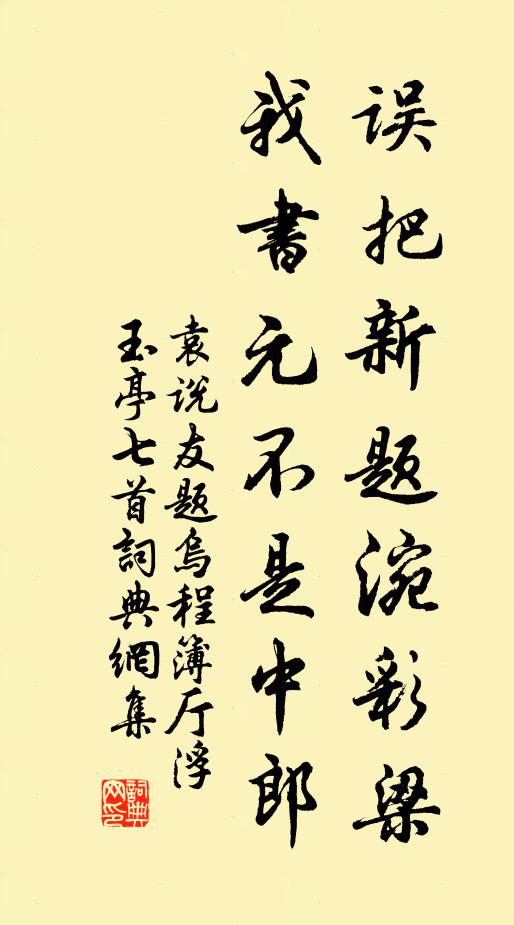 误把新题涴彩梁
我書元不是中郎
袁说友题烏程簿厅浮
玉亭七首詞典網集
詞典网印